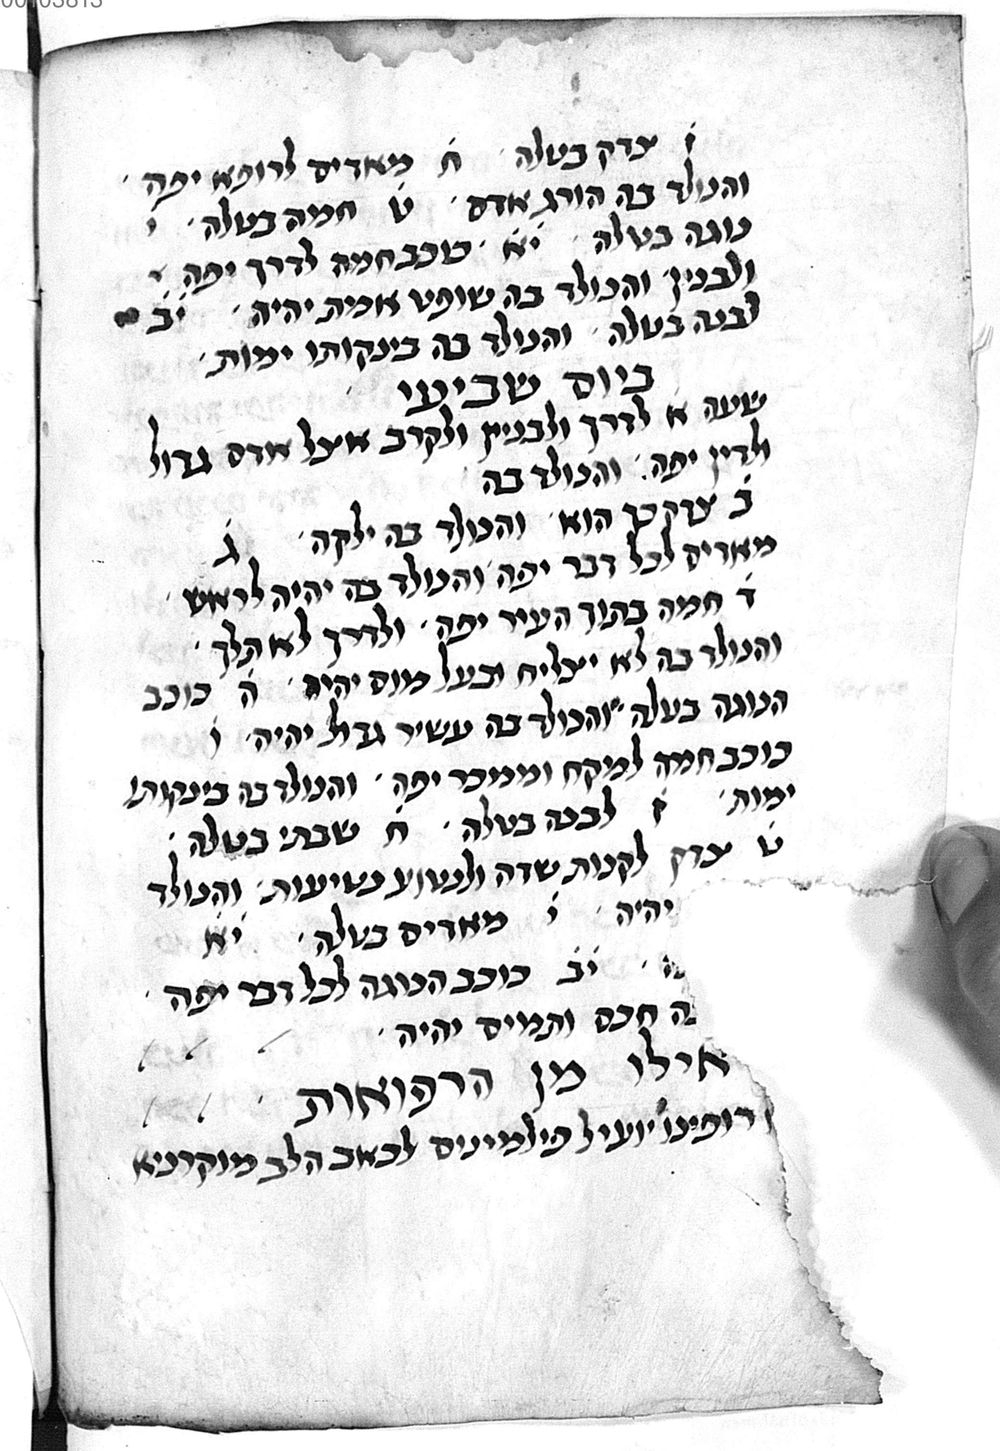 00103813
ז̇ צדק בטלה ח̇ מאדים לרופא יפה
והנולד בה הורג אדם ט̇ חמה בטלה י̇
נוגה בטלה י̇א̇ כוכב חמה לדרך יפה
ולבנין והנולד בה שופט אמית יהיה י̇ב̇
לבנה בטלה והנולד בה בינקותו ימות
ביום שביעי
שעה א לדרך ולבנין ולקרב אצל אדם גדול
ולדין יפה והנולד בה
ב̇ צדק כך הוא והנולד בה ילקה ג̇
מאדים לכל דבר יפה והנולד בה יהיה לראש
ד̇ חמה בתוך העיר יפה ולדרך לא תלך
והנולד בה לא יצליח ובעל מום יהיה ה̇ כוכב
הנוגה בטלה והנולד בה עשיר גדול יהיה ו̇
כוכב חמה למקח וממכר יפה והנולד בה בינקותו
ימות ז̇ לבנה בטלה ח̇ שבתי בטלה
ט̇ צדק לקנות שדה ולנטוע נטיעות והנולד
יהיה י̇ מאדים בטלה י̇א̇
י̇ב̇ כוכב הנוגה לכל דבר יפה
בה חכם ותמים יהיה
אילו מן הרפואות
רופינו יועיל פילמינים לכאב הלב מוקרניא